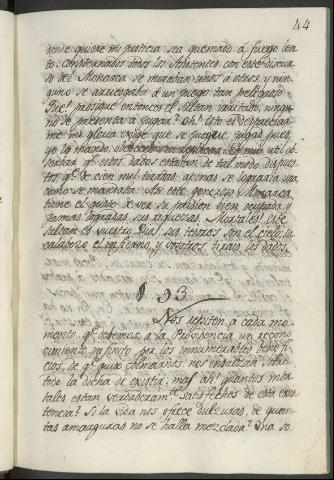 44
donde quiere mi justicia sea quemado à fuego len-
to. Consternados todos los Asistentes con este discur-
so del Monarca se miraban unos a otros, y nin-
guno se arriesgaba à un juego tan peligroso.
Que! prosigue entonces el Sultan irritado, ningu-
no se presenta à jugar? Oh! esto es despreciar-
me mi gloria exige que se juegue, jugad pues,
yo lo mando, obedeced
servar qe estos dados estaban de tal modo dispues-
tos, qe de cien mil tiradas apenas se lograria una
como se mandaba. Asi este generoso Monarca
tiene el gusto de ver su prision bien ocupada, y
jamas logradas sus riquezas. Mortales! este
Sultan es vuestro Dios! sus tesoros son el cielo: su
calabozo el infierno, y vosotros tirais los dados.
§. 93.
Nos repiten a cada mo-
mento, qe debemos, a la Providencia un recono-
cimiento infinito por los innumerables benefi-
cios, de qe quiso colmarnos. nos ensalzan sobre
todo la dicha de existir; mas ah! quantos mor-
tales estan verdaderamte satisfechos de esta exis-
tencia? Si la vida nos ofrece dulzuras, de quan-
tas amarguras no se halla mezclada? Una so-